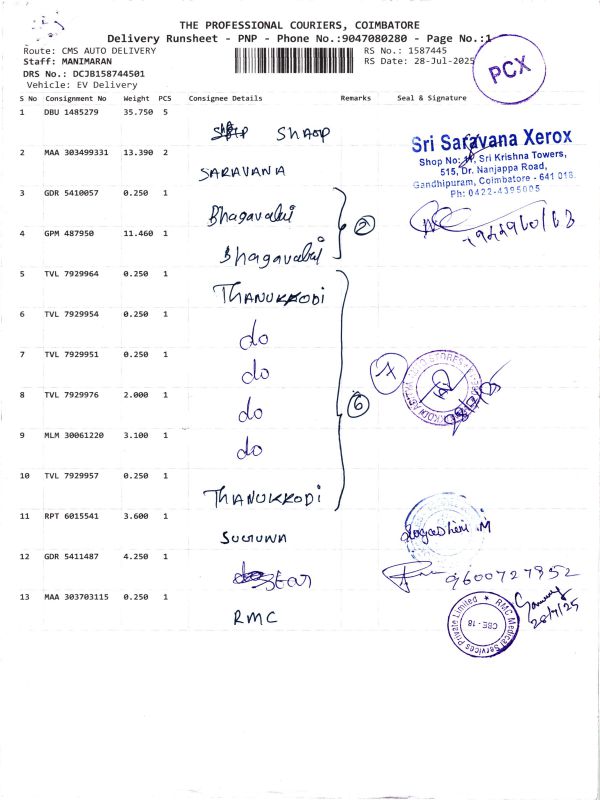 THE PROFESSIONAL COURIERS, COIMBATORE
Delivery Runsheet - PNP - Phone No.:9047080280 - Page No.:1
Route: CMS AUTO DELIVERY
RS No.: 1587445
Staff: MANIMARAN
RS Date: 28-Jul-2025
DRS No.: DCJB158744501
Vehicle: EV Delivery
PCX
S No Consignment No Weight PCS Consignee Details Remarks Seal & Signature
1 DBU 1485279 35.750 5
SHAAP
Sri Saravana Xerox
Shop No: Sri Krishna Towers,
515, Dr. Nanjappa Road,
Gandhipuram, Coimbatore - 641 018.
Ph: 0422-4395005
2 MAA 303499331 13.390 2
SARAVANA
3 GDR 5410057 0.250 1
Bhagavathi
2
4 GPM 487950 11.460 1
Bhagavathi
5 TVL 7929964 0.250 1
THANUKKODI
6 TVL 7929954 0.250 1
do
7 TVL 7929951 0.250 1
do
8 TVL 7929976 2.000 1
do
6
9 MLM 30061220 3.100 1
do
10 TVL 7929957 0.250 1
THANUKKODI
11 RPT 6015541 3.600 1
SUGUNA
12 GDR 5411487 4.250 1
Star
9600727952
13 MAA 303703115 0.250 1
RMC
RMC Medical Services Private Limited
CBE - 18
28/7/25